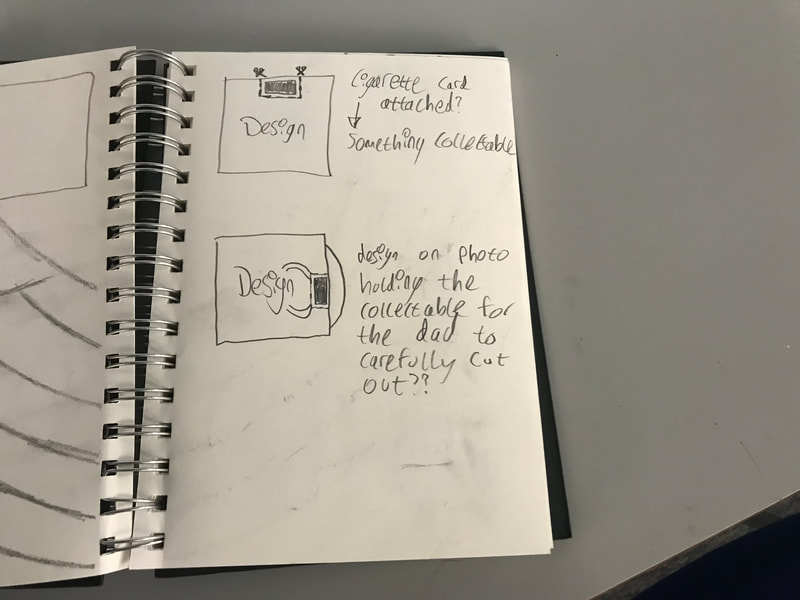 Design
Cigarette card
attached?
Something collectable
Design
design on photo
holding the
collectable for
the dad to
carefully cut
out??